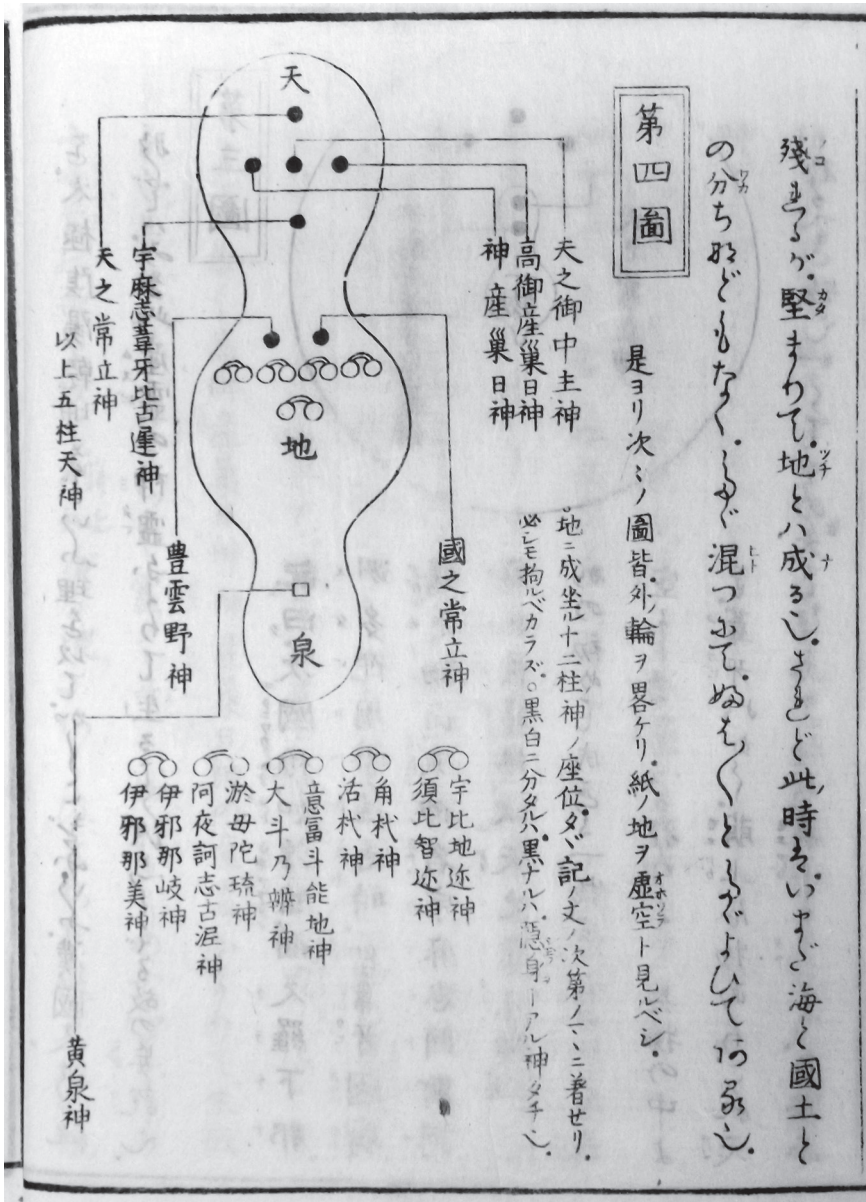 殘れるが。堅まりて。地とハ成る也。されど此時は。いまだ海と國土と
の分ちなどもなく。たゞ混つにて。
第四圖
是ヨリ次々ノ圖皆外ノ輪ヲ畧ケリ。紙ノ地ヲ虚空ト見ルベシ。
○地ニ成坐ル十二柱神ノ座位。タヾ記ノ文ノ次第ノマヽニ著セリ。
必シモ拘ルベカラズ。○黒白ニ分タルハ。黒ナルハ。隱身トアル神タチ也。
天
天之御中主神
高御産巣日神
神産巣日神
宇麻志葦牙比古遲神
天之常立神
以上五柱天神
地
國之常立神
豊雲野神
泉
宇比地迩神
須比智迩神
角杙神
活杙神
意冨斗能地神
大斗乃辨神
淤母陀琉神
阿夜訶志古泥神
伊邪那岐神
伊邪那美神
黄泉神